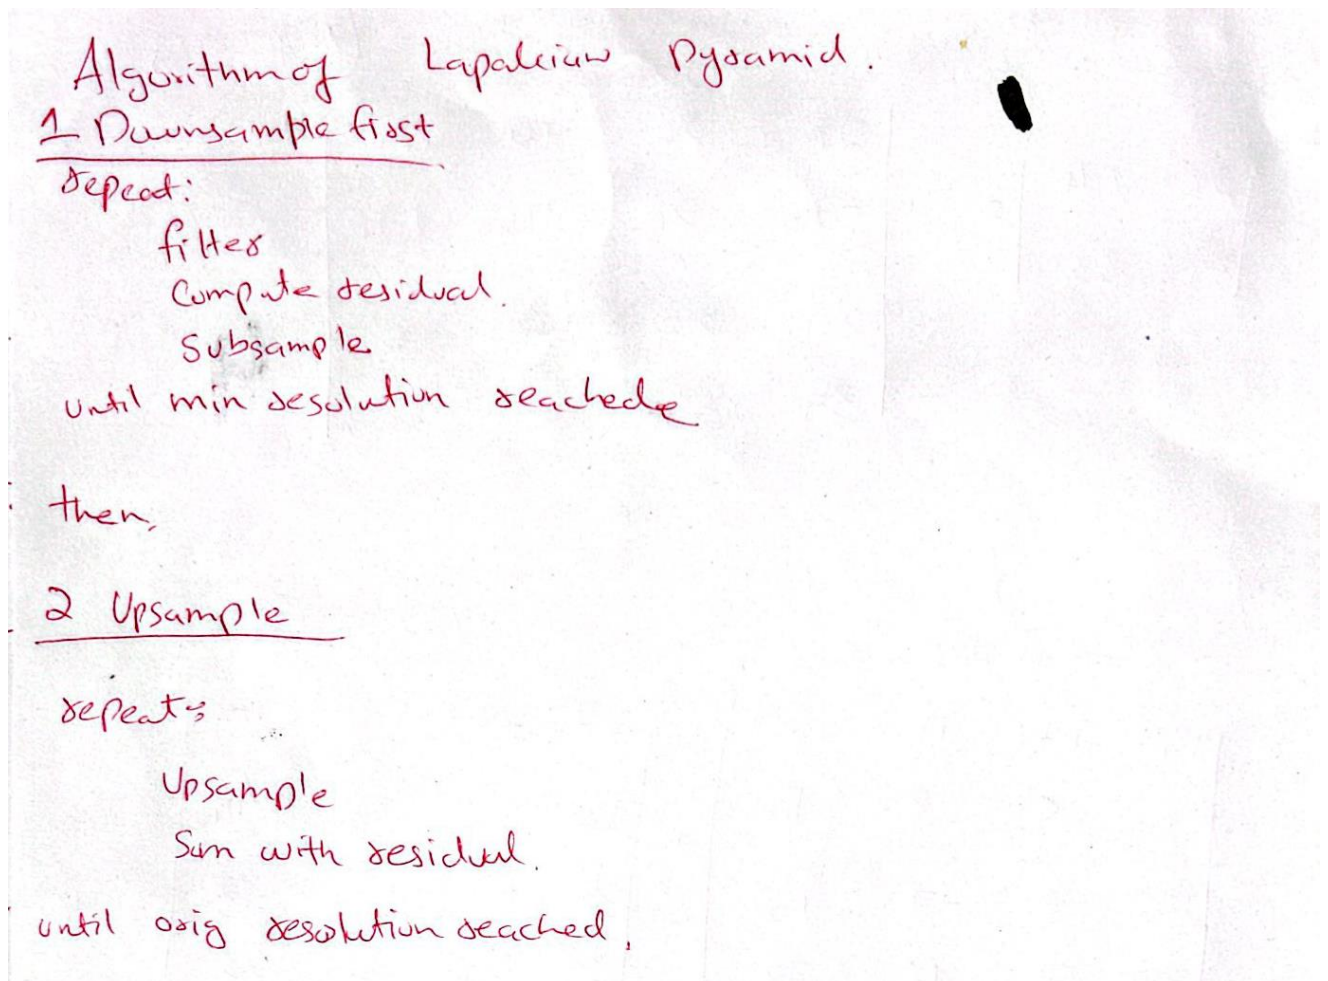 Algorithm of Lapalciaw Pyramid.
1 Downsample first
repeat:
filter
Compute residual.
Subsample
until min resolution reached
then,
2 Upsample
repeat:
Upsample
Sum with residual.
until orig resolution reached.